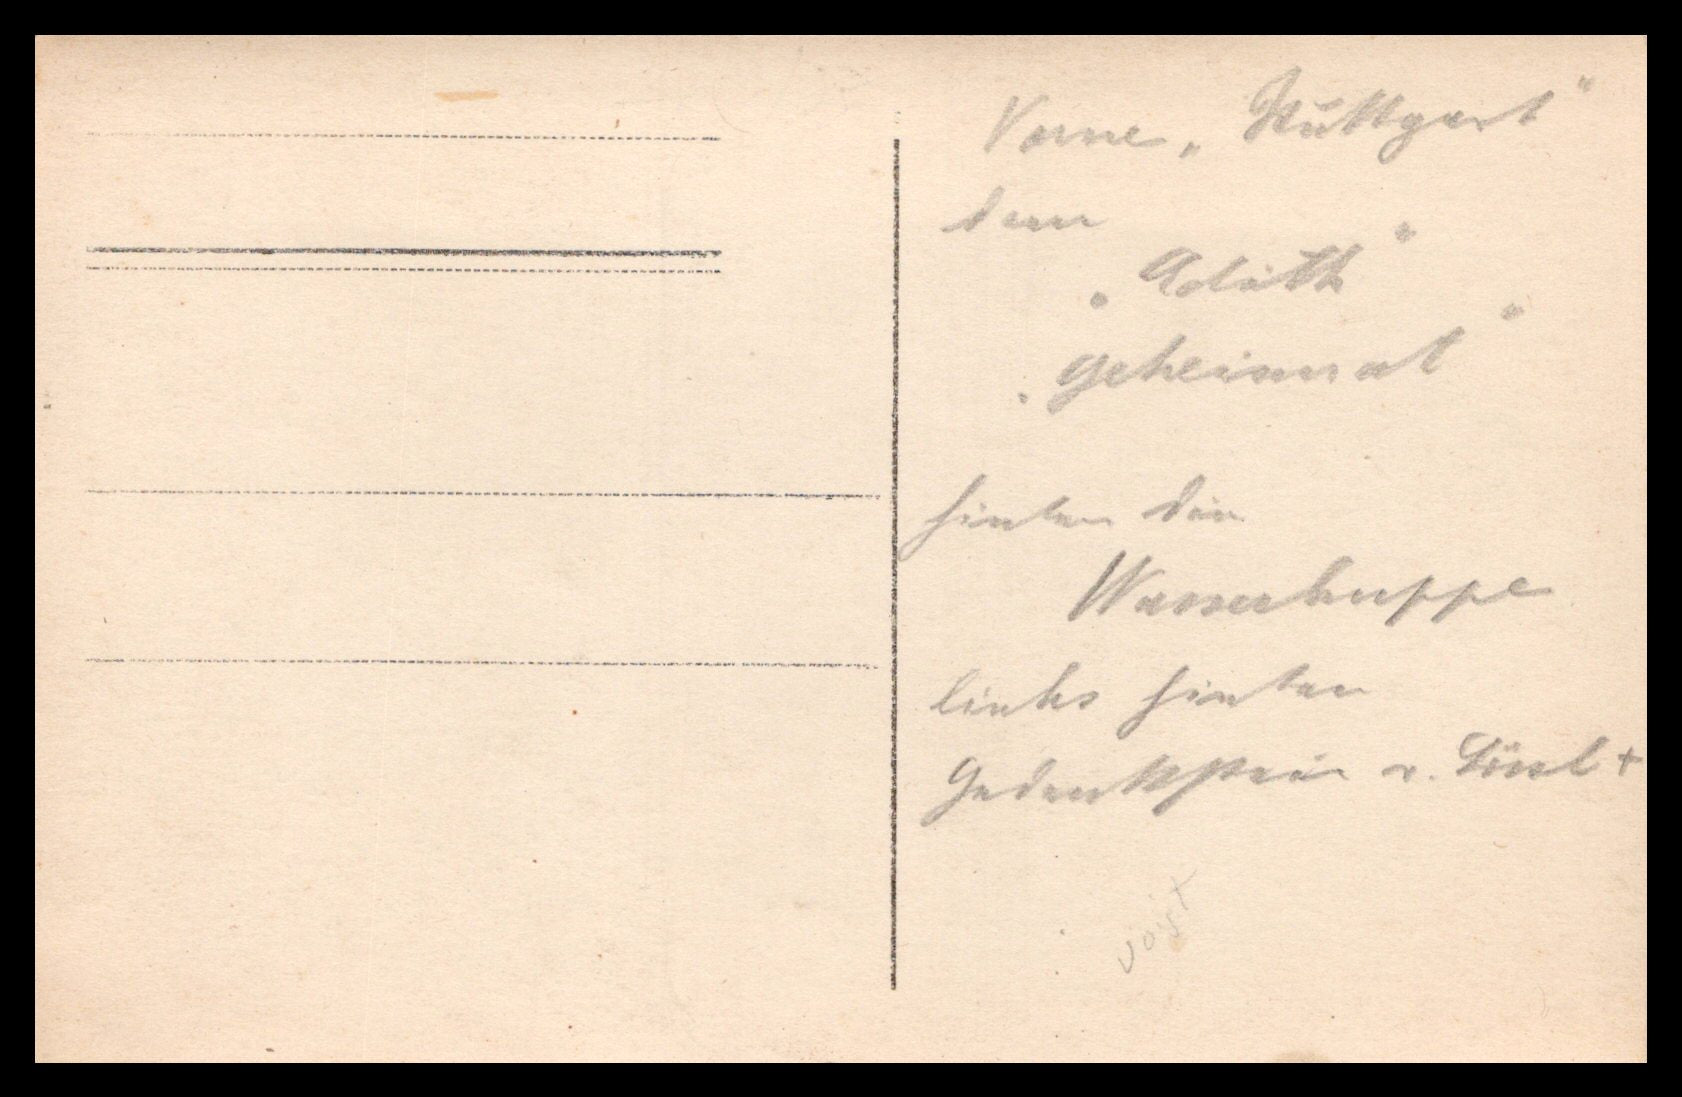 Vorne „Stuttgart“
dann
„Edith“
„Geheimrat“
hinten die
Wasserkuppe
links hinten
Gedenkstein v. Lössl +
voigt